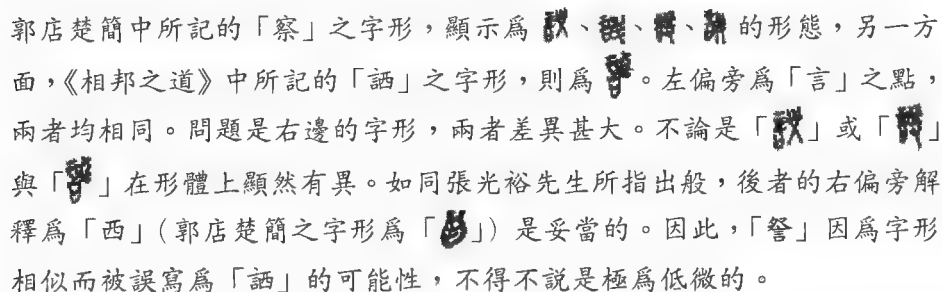 郭店楚簡中所記的「察」之字形，顯示爲、、、的形態，另一方
面，《相邦之道》中所記的「訥」之字形，則爲。左偏旁爲「言」之點，
兩者均相同。問題是右邊的字形，兩者差異甚大。不論是「」或「」
與「」在形體上顯然有異。如同張光裕先生所指出般，後者的右偏旁解
釋爲「西」（郭店楚簡之字形爲「」）是妥當的。因此，「詧」因爲字形
相似而被誤寫爲「」的可能性，不得不說是極爲低微的。